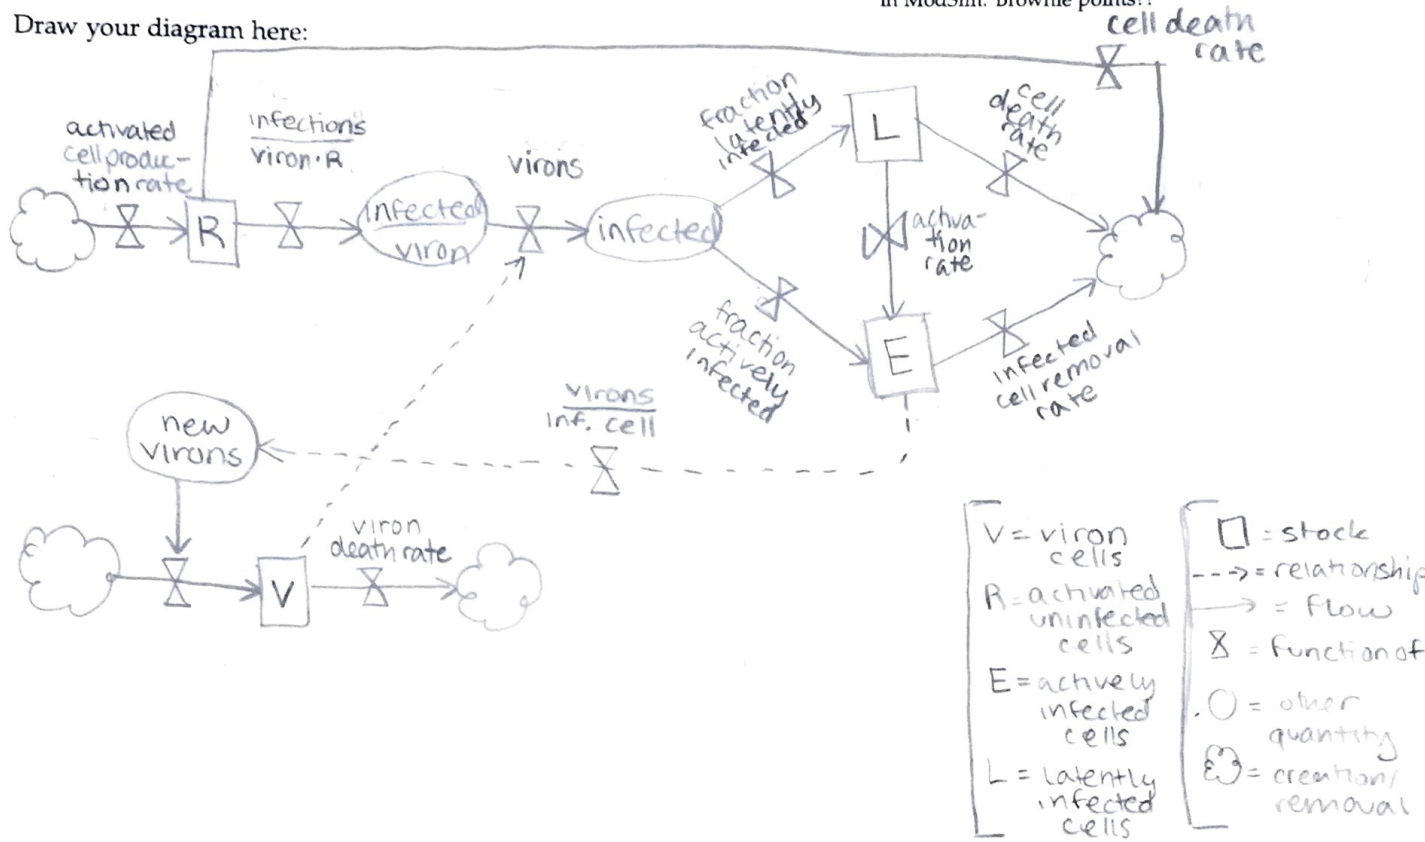 in ModSim. Brownie points!!
Draw your diagram here:
cell death
rate
activated
cell produc-
tion rate
infections
viron·R
virons
fraction
latently
infected
L
cell
death
rate
R
infected
viron
infected
activa-
tion
rate
fraction
actively
infected
E
infected
cell removal
rate
new
virons
virons
inf. cell
viron
death rate
V
V = viron
cells
R = activated
uninfected
cells
E = actively
infected
cells
L = latently
infected
cells
= stock
= relationship
= flow
= function of
= other
quantity
= creation/
removal